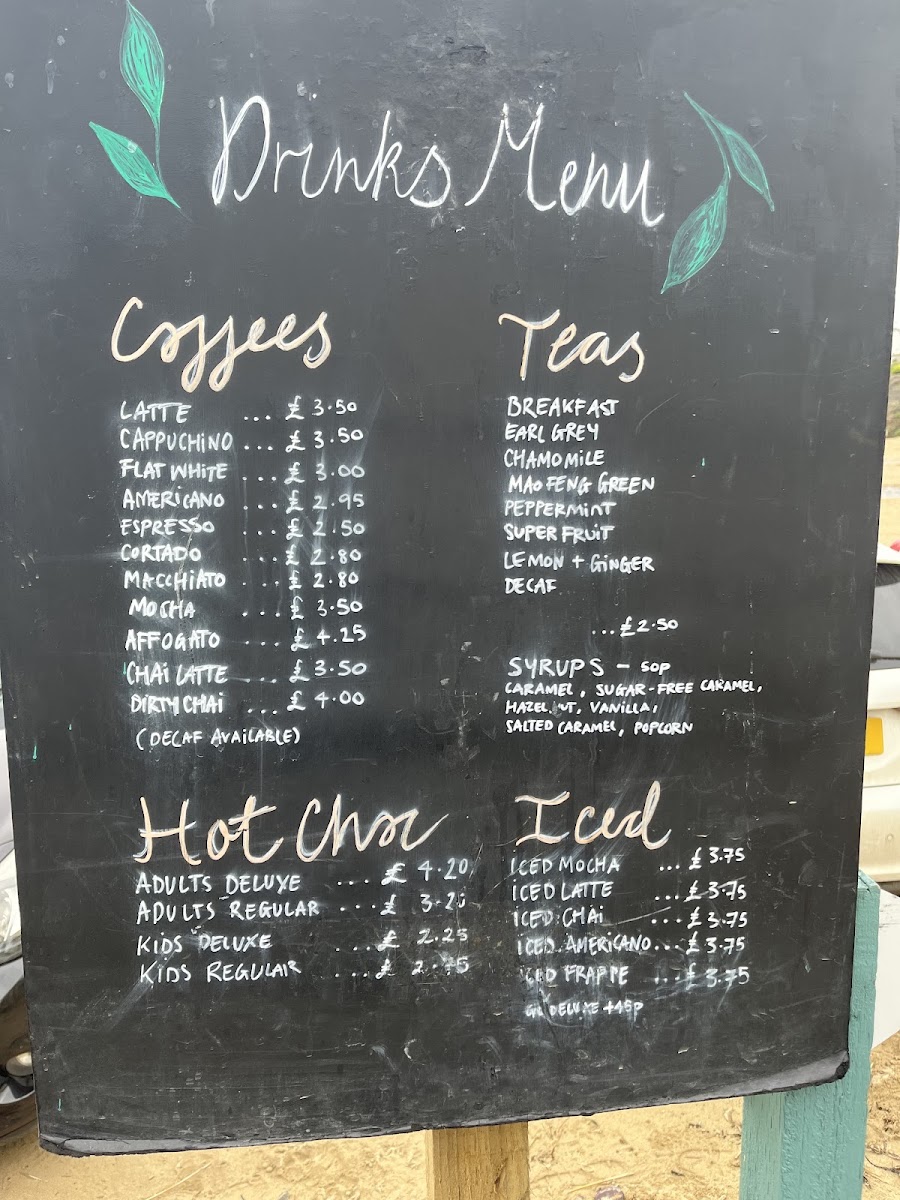 Drinks Menu
Coffees
LATTE ... £ 3.50
CAPPUCHINO ... £ 3.50
FLAT WHITE ... £ 3.00
AMERICANO ... £ 2.95
ESPRESSO ... £ 2.50
CORTADO ... £ 2.80
MACCHIATO ... £ 2.80
MOCHA ... £ 3.50
AFFOGATO ... £ 4.25
CHAI LATTE ... £ 3.50
DIRTY CHAI ... £ 4.00
(DECAF AVAILABLE)
Teas
BREAKFAST
EARL GREY
CHAMOMILE
MAO FENG GREEN
PEPPERMINT
SUPER FRUIT
LEMON + GINGER
DECAF
... £2.50
SYRUPS - 50P
CARAMEL, SUGAR-FREE CARAMEL,
HAZELNUT, VANILLA,
SALTED CARAMEL, POPCORN
Hot Choc
ADULTS DELUXE ... £ 4.20
ADULTS REGULAR ... £
KIDS DELUXE ... £ 2.25
KIDS REGULAR ... £
Iced
ICED MOCHA ... £ 3.75
ICED LATTE ... £ 3.75
ICED CHAI ... £ 3.75
ICED AMERICANO ... £ 3.75
ICED FRAPPE ... £ 3.75
GO DELUXE +45P